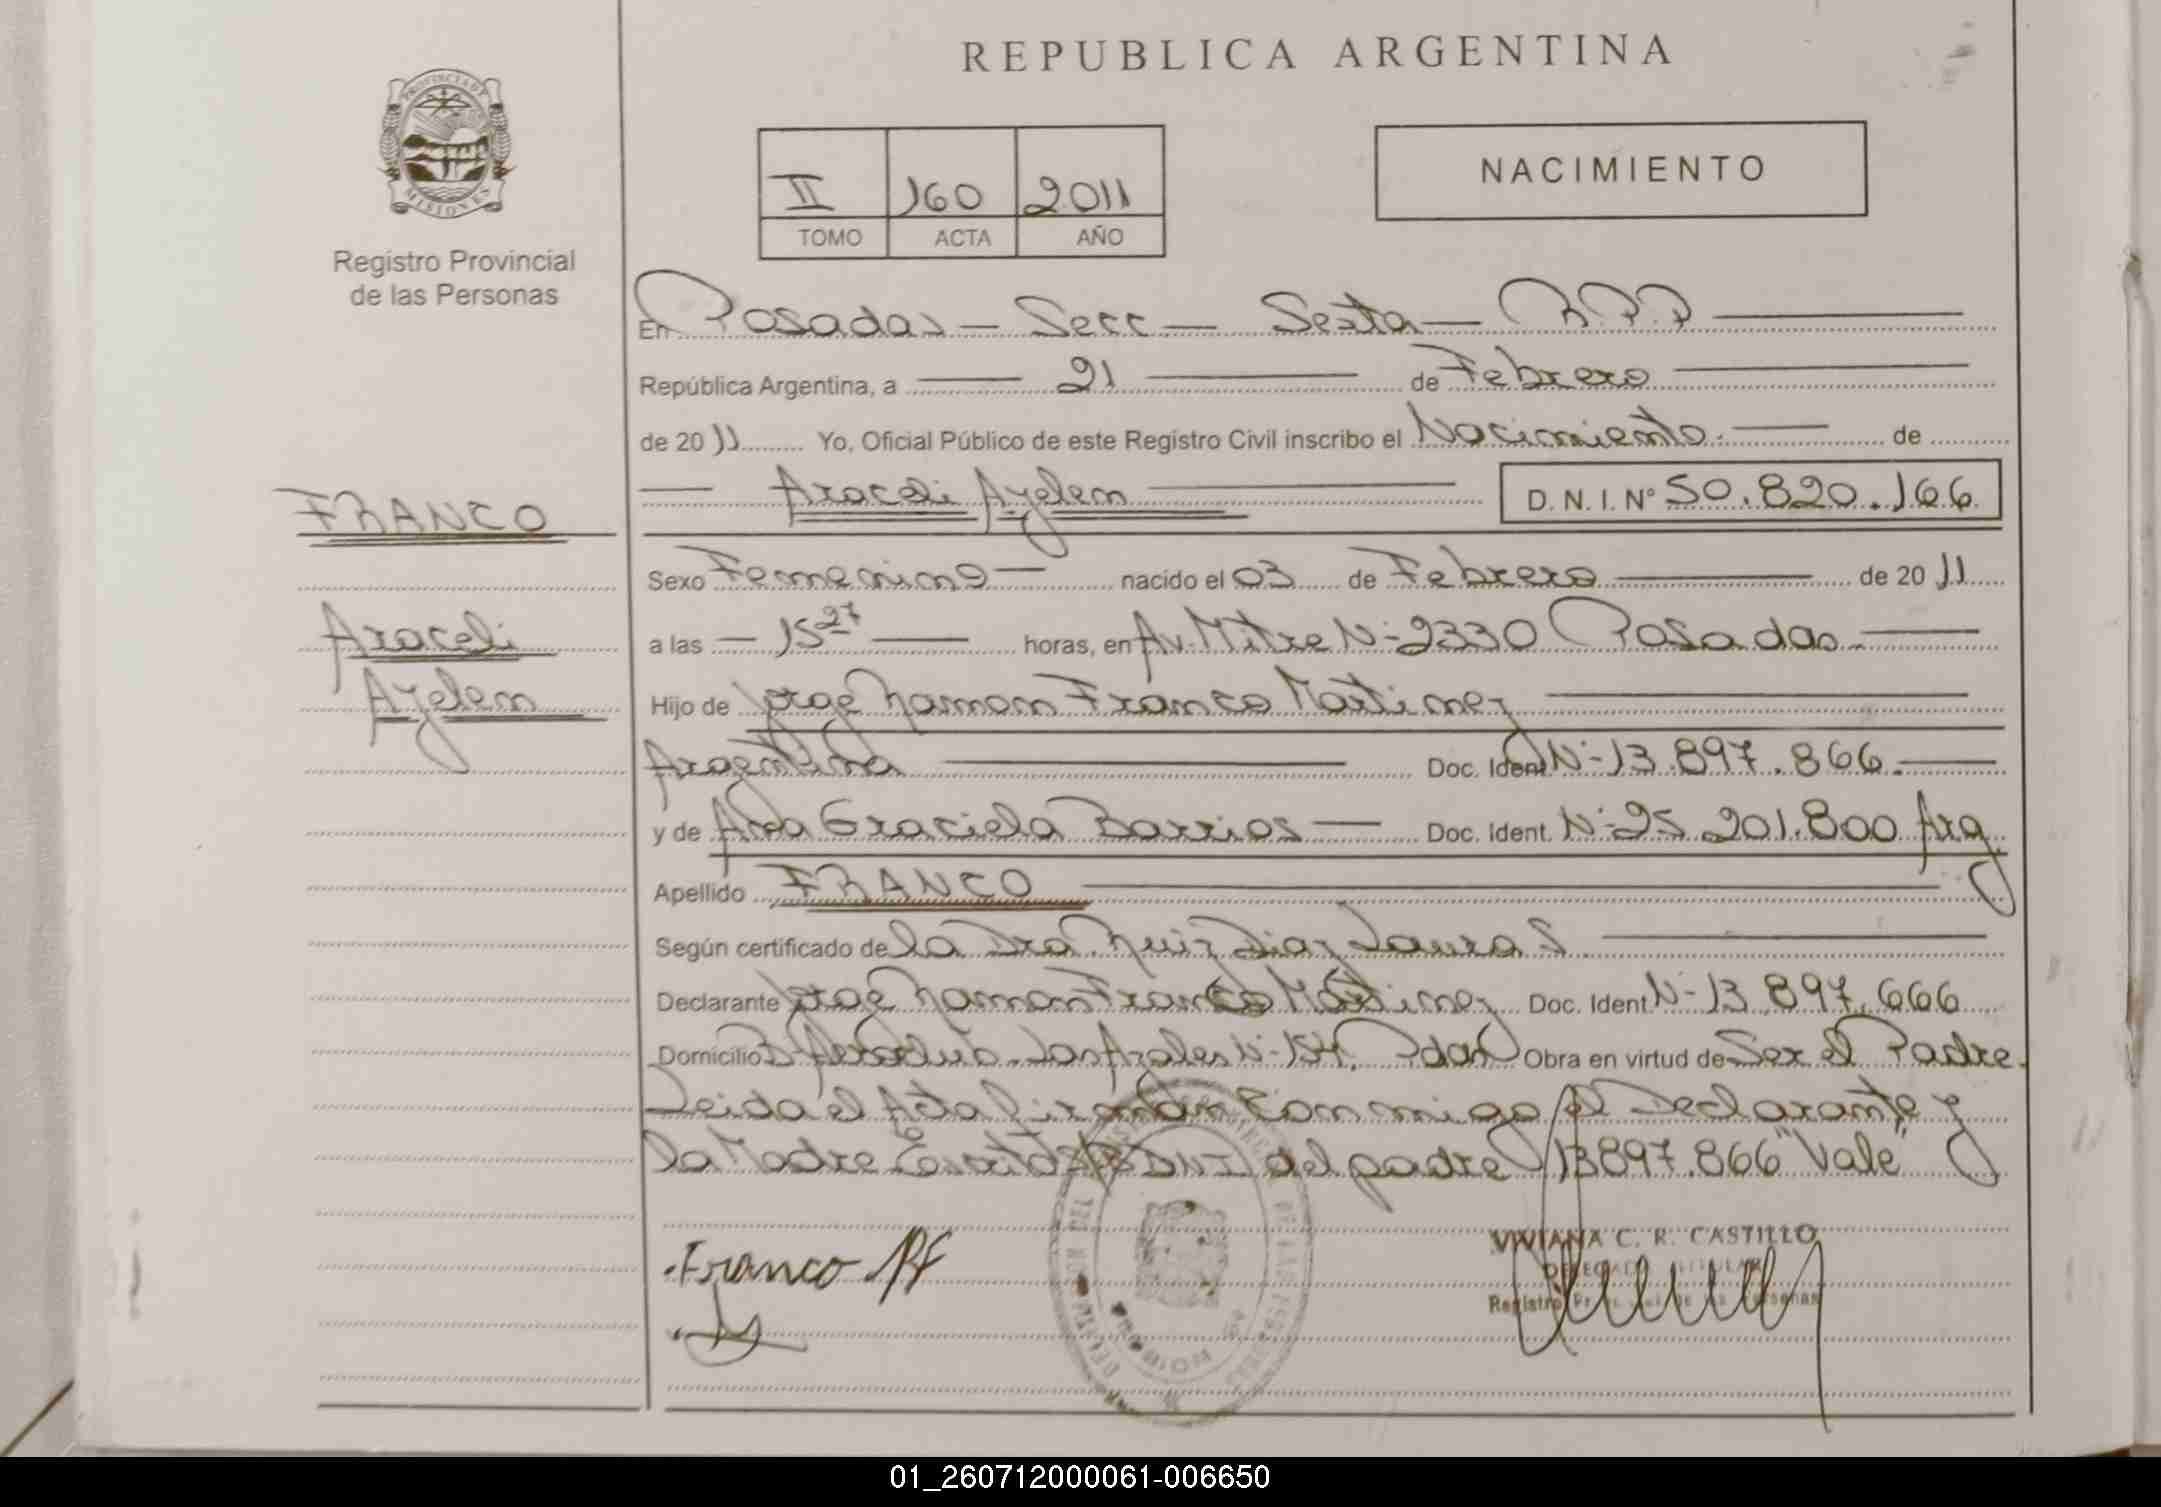 REPUBLICA ARGENTINA
PROVINCIA DE MISIONES
Registro Provincial
de las Personas
II 160 2011
TOMO ACTA AÑO
NACIMIENTO
En Posadas - Secc - Sexta - R.P.P
República Argentina, a 21 de Febrero
de 2011 Yo, Oficial Público de este Registro Civil inscribo el Nacimiento. de
Araceli Ayelem
D. N. I. Nº 50.820.166
FRANCO
Araceli
Ayelem
Sexo Femenino nacido el 03 de Febrero de 2011
a las 15 27 horas, en Av. Mitre N- 2330 Posadas
Hijo de Jorge Ramon Franco Martinez
Argentina Doc. Ident N- 13.897.866.
y de Ana Graciela Barrios Doc. Ident. N- 25.201.800 Arg.
Apellido FRANCO
Según certificado de la Dra. Ruiz Diaz Laura
Declarante Jorge Ramon Franco Martinez Doc. Ident. N- 13.897.666
Domicilio Los N- Pdas Obra en virtud de Ser el Padre.
Leida el Acta firman conmigo el Declarante y
la Madre DNI del padre 13897.866 "Vale"
Franco
VIVIANA C. R. CASTILLO
DELEGADA TITULAR
Registro de las Personas
01_260712000061-006650